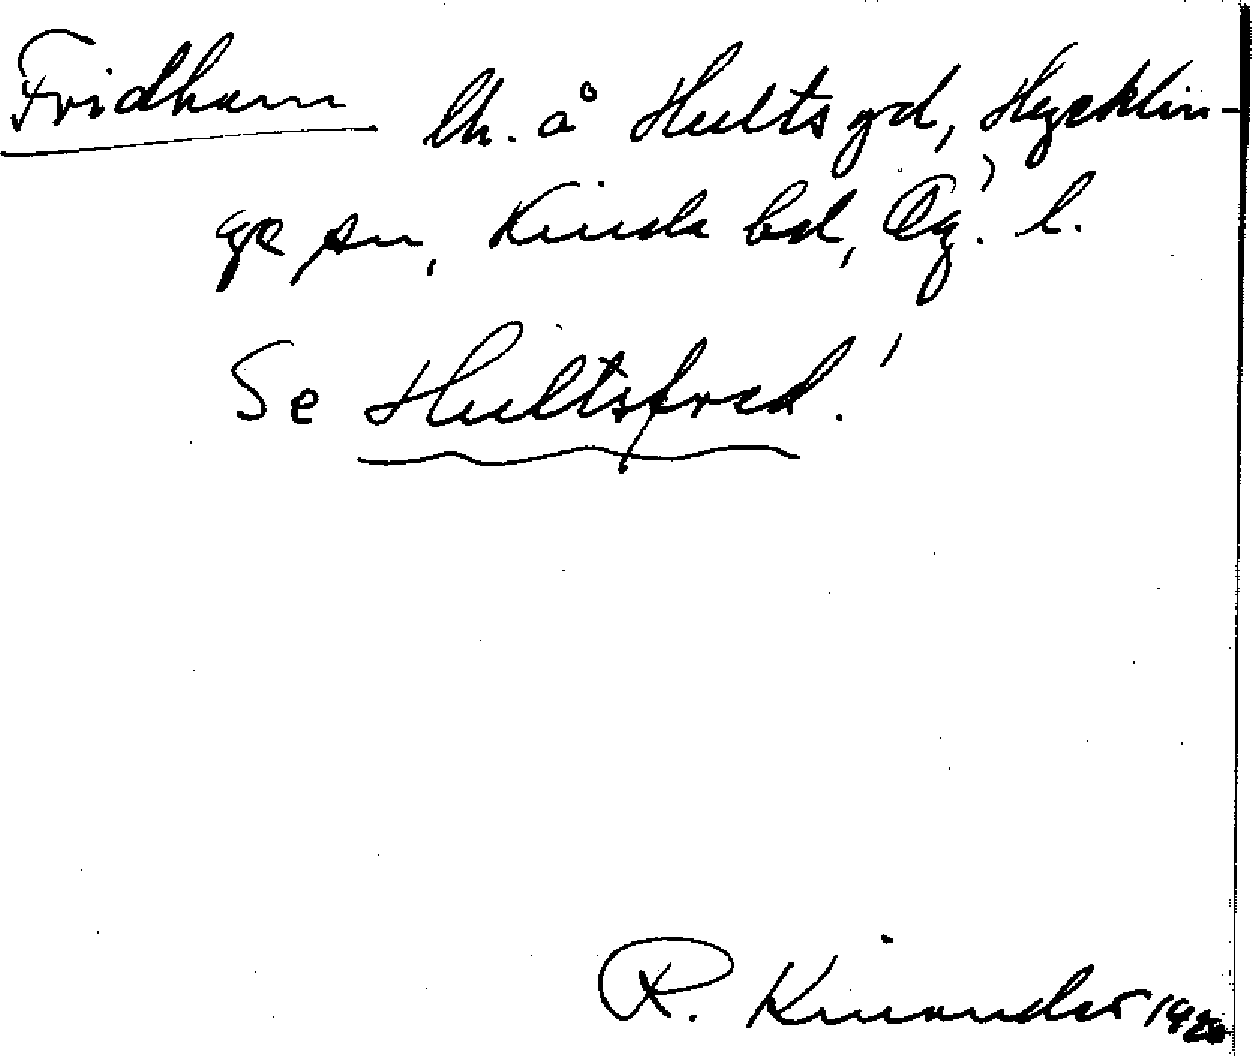 Fridhem lh. å Hults gd, Hycklin-
ge sn, Kinda hd, Ög. l.
Se Hultsfred!
R. Kinander 19